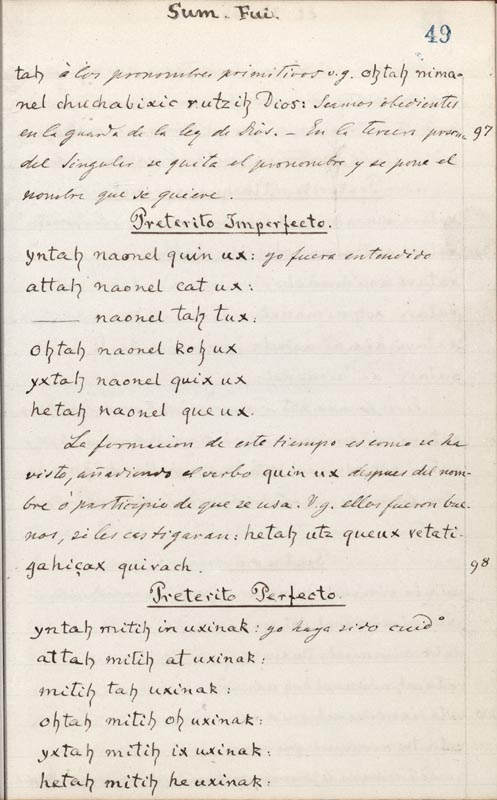 Sum. Fui.
49
taꜧ à los pronombres primitivos v.g. oꜧtaꜧ nima-
nel chuchabixic rutziꜧ Dios: Seamos obedientes
en la guarda de la ley de Dios. – En la tercera person. 97
del singular se quita el pronombre y se pone el
nombre que se quiere.
Preterito Imperfecto.
yntaꜧ naonel quin ux: yo fuera entendido
attaꜧ naonel cat ux:
—— naonel taꜧ tux:
oꜧtaꜧ naonel koꜧ ux
yxtaꜧ naonel quix ux
hetaꜧ naonel que ux.
La formacion de este tiempo es como se ha
visto, añadiendo el verbo quin ux despues del nom-
bre ó participio de que se usa. V.g. ellos fueron bue-
nos, si les castigaran: hetaꜧ utz queux vetati-
gahiçax quivach. 98
Preterito Perfecto.
yntaꜧ mitiꜧ in uxinak: yo haya sido cuidº
attaꜧ mitiꜧ at uxinak:
mitiꜧ taꜧ uxinak:
oꜧtaꜧ mitiꜧ oꜧ uxinak:
yxtaꜧ mitiꜧ ix uxinak:
hetaꜧ mitiꜧ he uxinak: